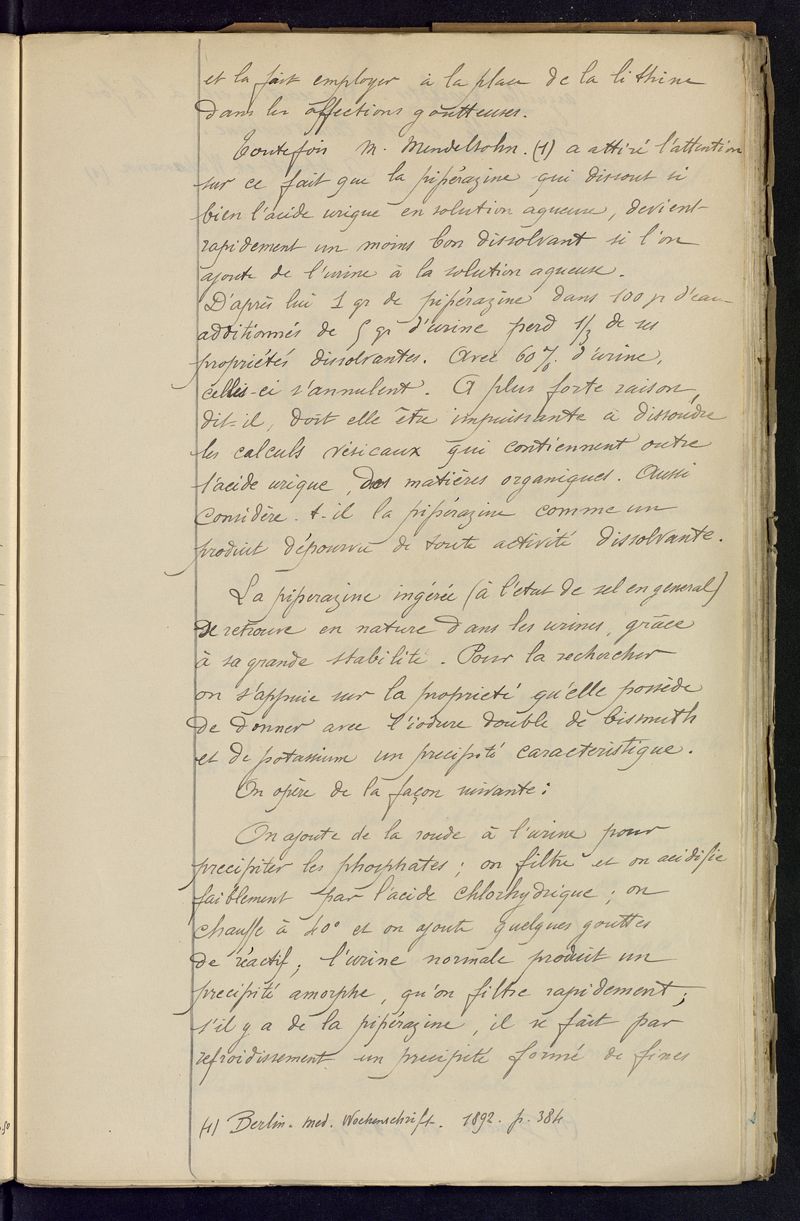 et la fait employer à la place de la lithine
dans les affections goutteuses.
Toutefois M. Mendelsohn. (1) a attiré l'attention
sur ce fait que la pipérazine qui dissout si
bien l'acide urique en solution aqueuse, devient
rapidement un moins bon dissolvant si l'on
ajoute de l'urine à la solution aqueuse.
D'après lui 1 gr de pipérazine dans 100 gr d'eau
additionnés de 5 gr d'urine perd 1/3 de ses
propriétés dissolvantes. Avec 60% d'urine,
celles-ci s'annulent. A plus forte raison,
dit-il, doit elle être impuissante à dissoudre
les calculs vésicaux qui contiennent outre
l'acide urique, des matières organiques. Aussi
considère-t-il la pipérazine comme un
produit dépourvu de toute activité dissolvante.
La piperazine ingérée (à l'etat de sel en general)
se retrouve en nature dans les urines, grâce
à sa grande stabilité. Pour la rechercher
on s'appuie sur la proprieté qu'elle possède
de donner avec l'iodure double de bismuth
et de potassium un precipité caracteristique.
On opère de la façon suivante :
On ajoute de la soude à l'urine pour
precipiter les phosphates ; on filtre et on acidifie
faiblement par l'acide chlorhydrique ; on
chauffe à 40° et on ajoute quelques gouttes
de réactif ; l'urine normale produit un
precipité amorphe, qu'on filtre rapidement ;
s'il y a de la pipérazine, il se fait par
refroidissement un precipité formé de fines
(1) Berlin. med. Wochenschrift. 1892. p. 384